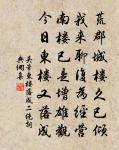 荒郡城樓久已傾
我來聊復為經營
南樓已是增雄觀
今日東樓又落成
吳守東樓落成二絕句
典調集